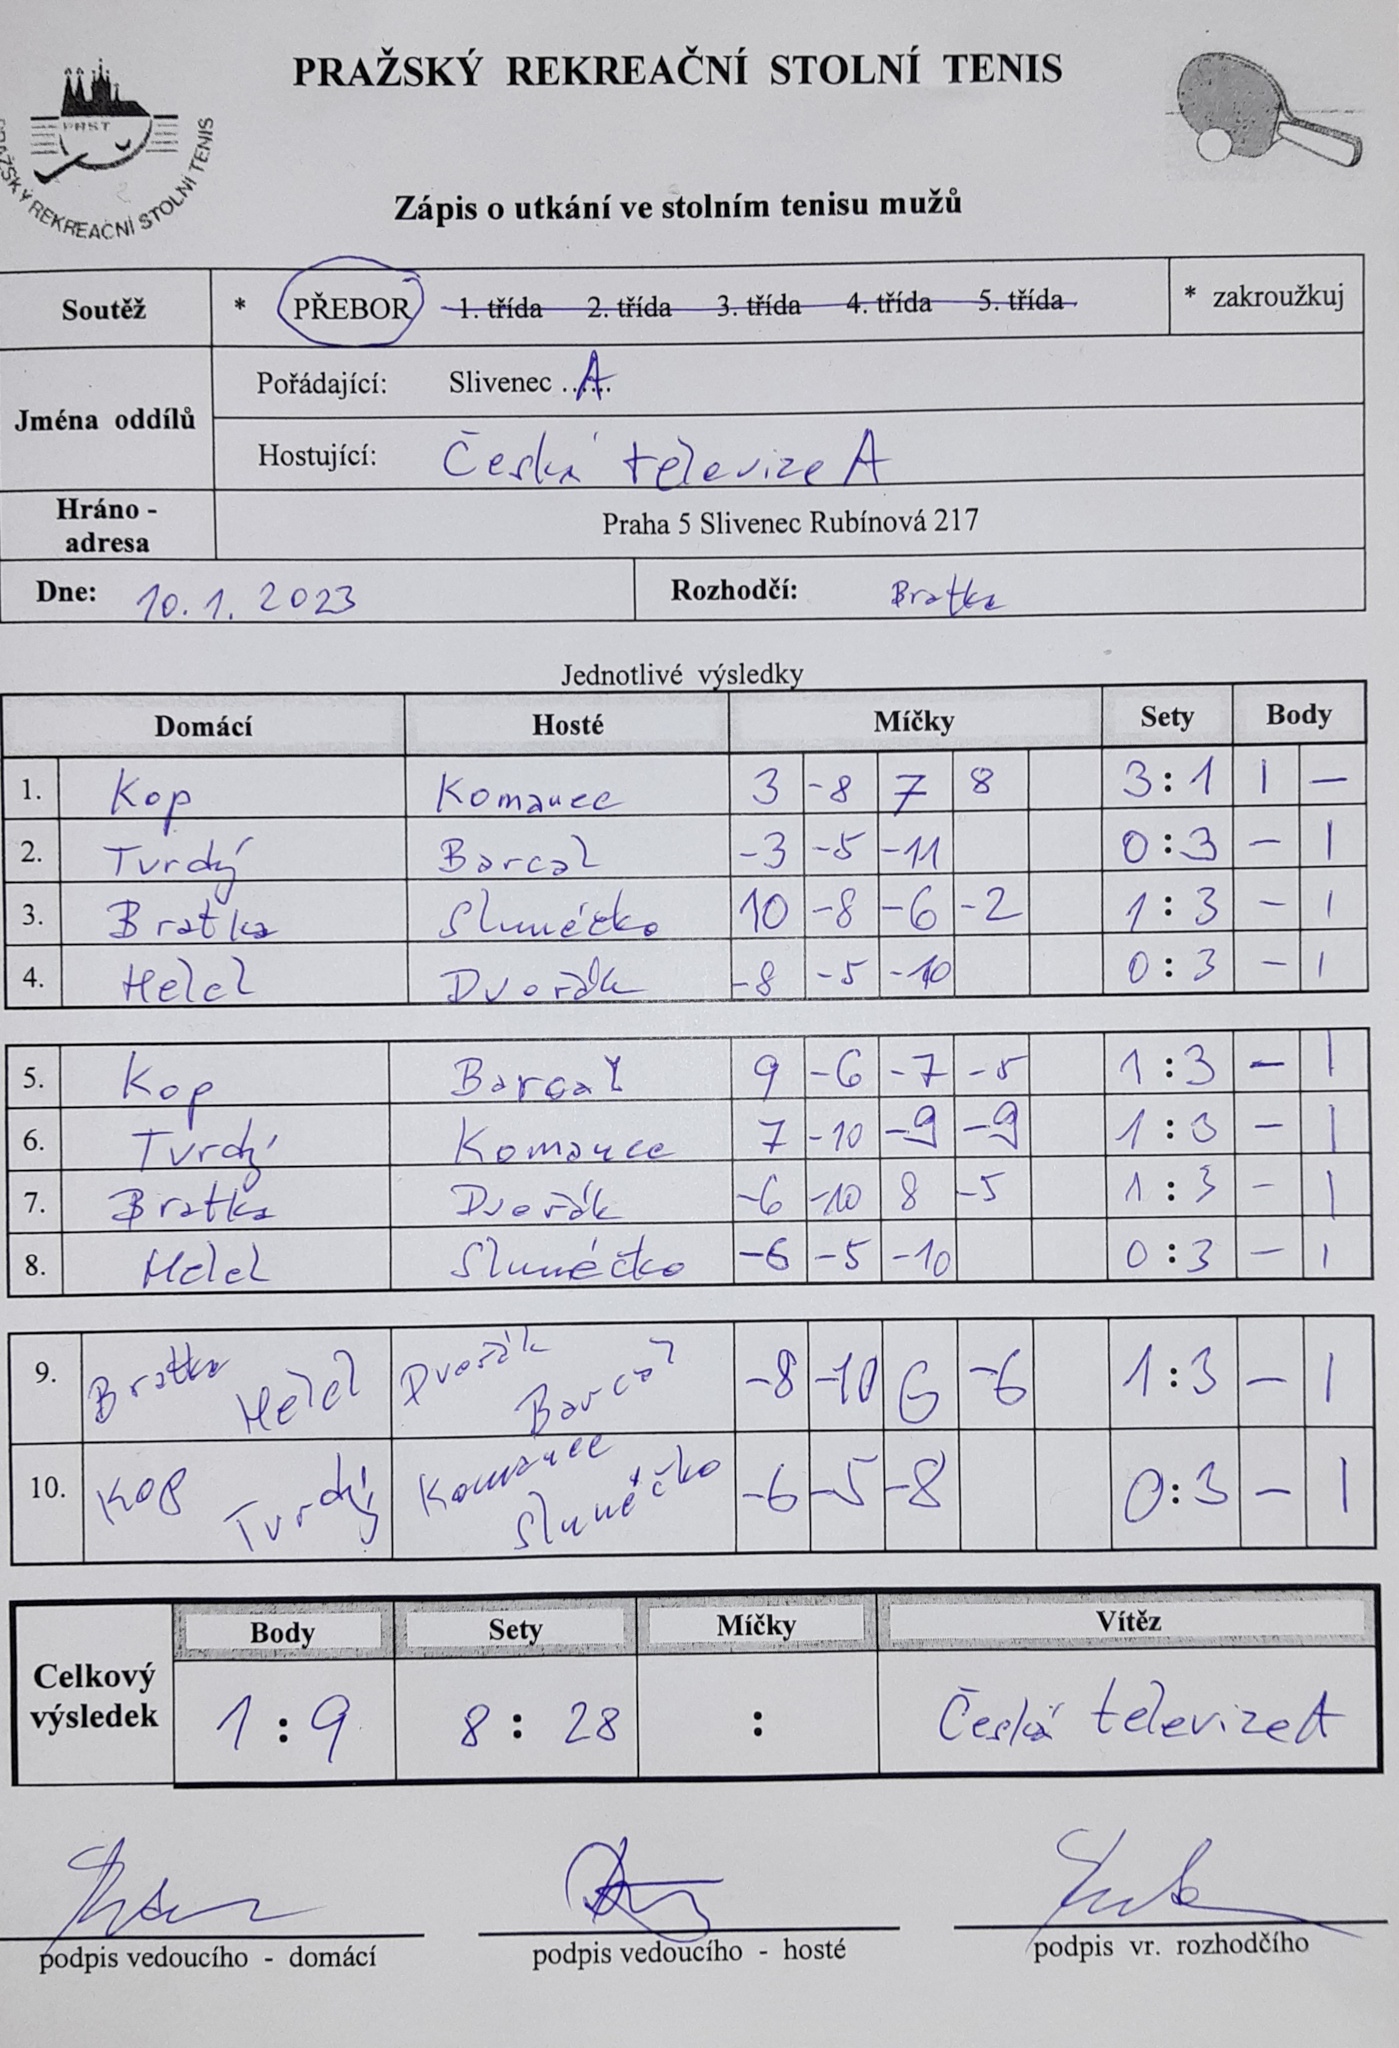 PRAŽSKÝ REKREAČNÍ STOLNÍ TENIS
PRST
PRAŽSKÝ REKREAČNÍ STOLNÍ TENIS
Zápis o utkání ve stolním tenisu mužů
Soutěž * PŘEBOR 1. třída 2. třída 3. třída 4. třída 5. třída * zakroužkuj
Jména oddílů
Pořádající: Slivenec ..A..
Hostující: Česká televize A
Hráno - adresa Praha 5 Slivenec Rubínová 217
Dne: 10. 1. 2023 Rozhodčí: Bratka
Jednotlivé výsledky
Domácí Hosté Míčky Sety Body
1. Kop Komanec 3 -8 7 8 3:1 1 –
2. Tvrdý Barcal -3 -5 -11 0:3 – 1
3. Bratka Slunéčko 10 -8 -6 -2 1:3 – 1
4. Helel Dvořák -8 -5 -10 0:3 – 1
5. Kop Barcal 9 -6 -7 -5 1:3 – 1
6. Tvrdý Komanec 7 -10 -9 -9 1:3 – 1
7. Bratka Dvořák -6 -10 8 -5 1:3 – 1
8. Helel Slunéčko -6 -5 -10 0:3 – 1
9. Bratka Helel Dvořák Barcal -8 -10 6 -6 1:3 – 1
10. Kop Tvrdý Komanec Slunéčko -6 -5 -8 0:3 – 1
Celkový výsledek
Body Sety Míčky Vítěz
1 : 9 8 : 28 : Česká televize A
podpis vedoucího - domácí podpis vedoucího - hosté podpis vr. rozhodčího